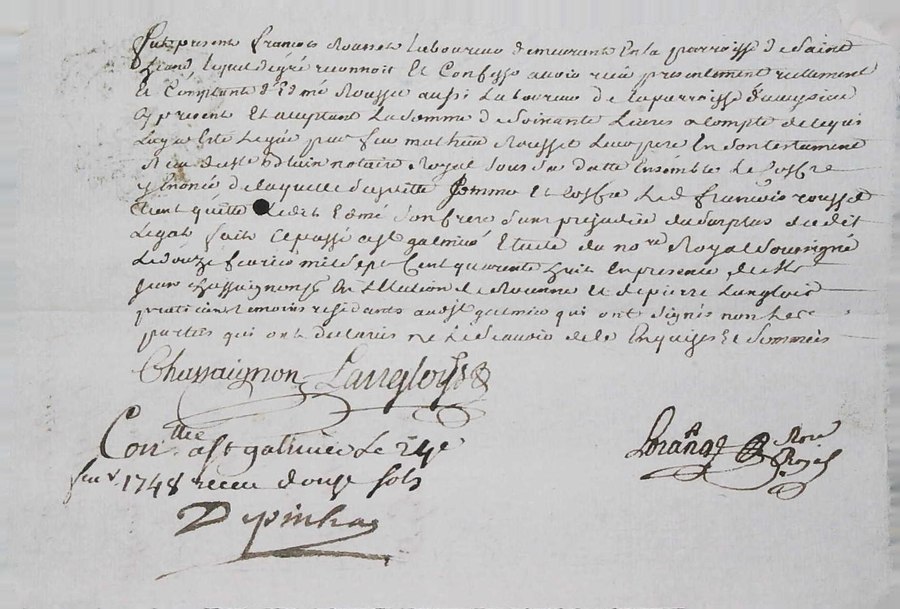 Fut present francois Rousset laboureur demeurant En la parroisse de Saint
lequel de gré reconnoit Et Confesse avoir receu presentement reellement
Et Comptant d'Edmé Rousset aussi Laboureur de la parroisse
cy present Et acceptant La Somme de Soixante Livres a Compte de legat
a luy a Eté Legué par feu mathieu Rousset Leur pere En Son testament
Receu de Me notaire Royal Sous Sa datte Ensemble Le Coffre
y Enoncé de laquelle Susditte Somme Et Coffre Led. francois rousset
tient quitte Ledit Edmé Son frere Sans prejudice du Surplus dudit
Legat fait Et passé a St galmier Etude du nore Royal Soussigné
Le douze fevrier mil Sept Cent quarante huit En presence de Me
jean Chassaignon En L'Election de Roanne Et de pierre Langlois
praticien temoins residants audit St galmier qui ont Signés non Les
parties qui ont declarés ne Le Scavoir de ce Enquises Et Sommées
Chassaignon Langlois
Con.llé a St galmier Le 24e
fev.r 1748 receu douze Sols
Depinhac
Lorange Nore
Royal